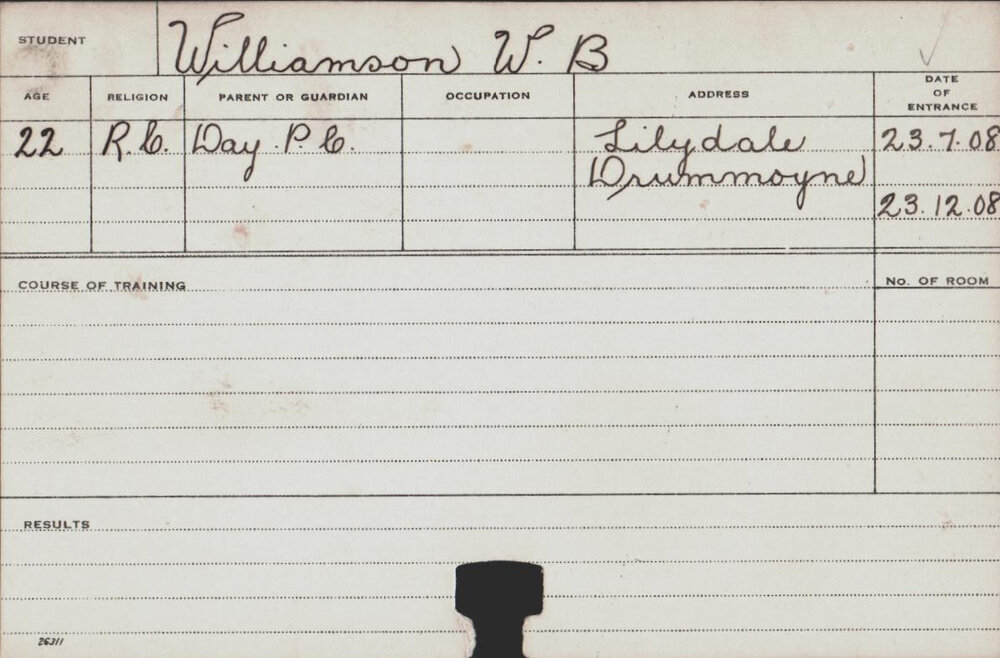 STUDENT Williamson W. B
AGE RELIGION PARENT OR GUARDIAN OCCUPATION ADDRESS DATE OF ENTRANCE
22 R.C. Day. P. C. Lilydale 23.7.08
Drummoyne
23.12.08
COURSE OF TRAINING No. OF ROOM
RESULTS
26311